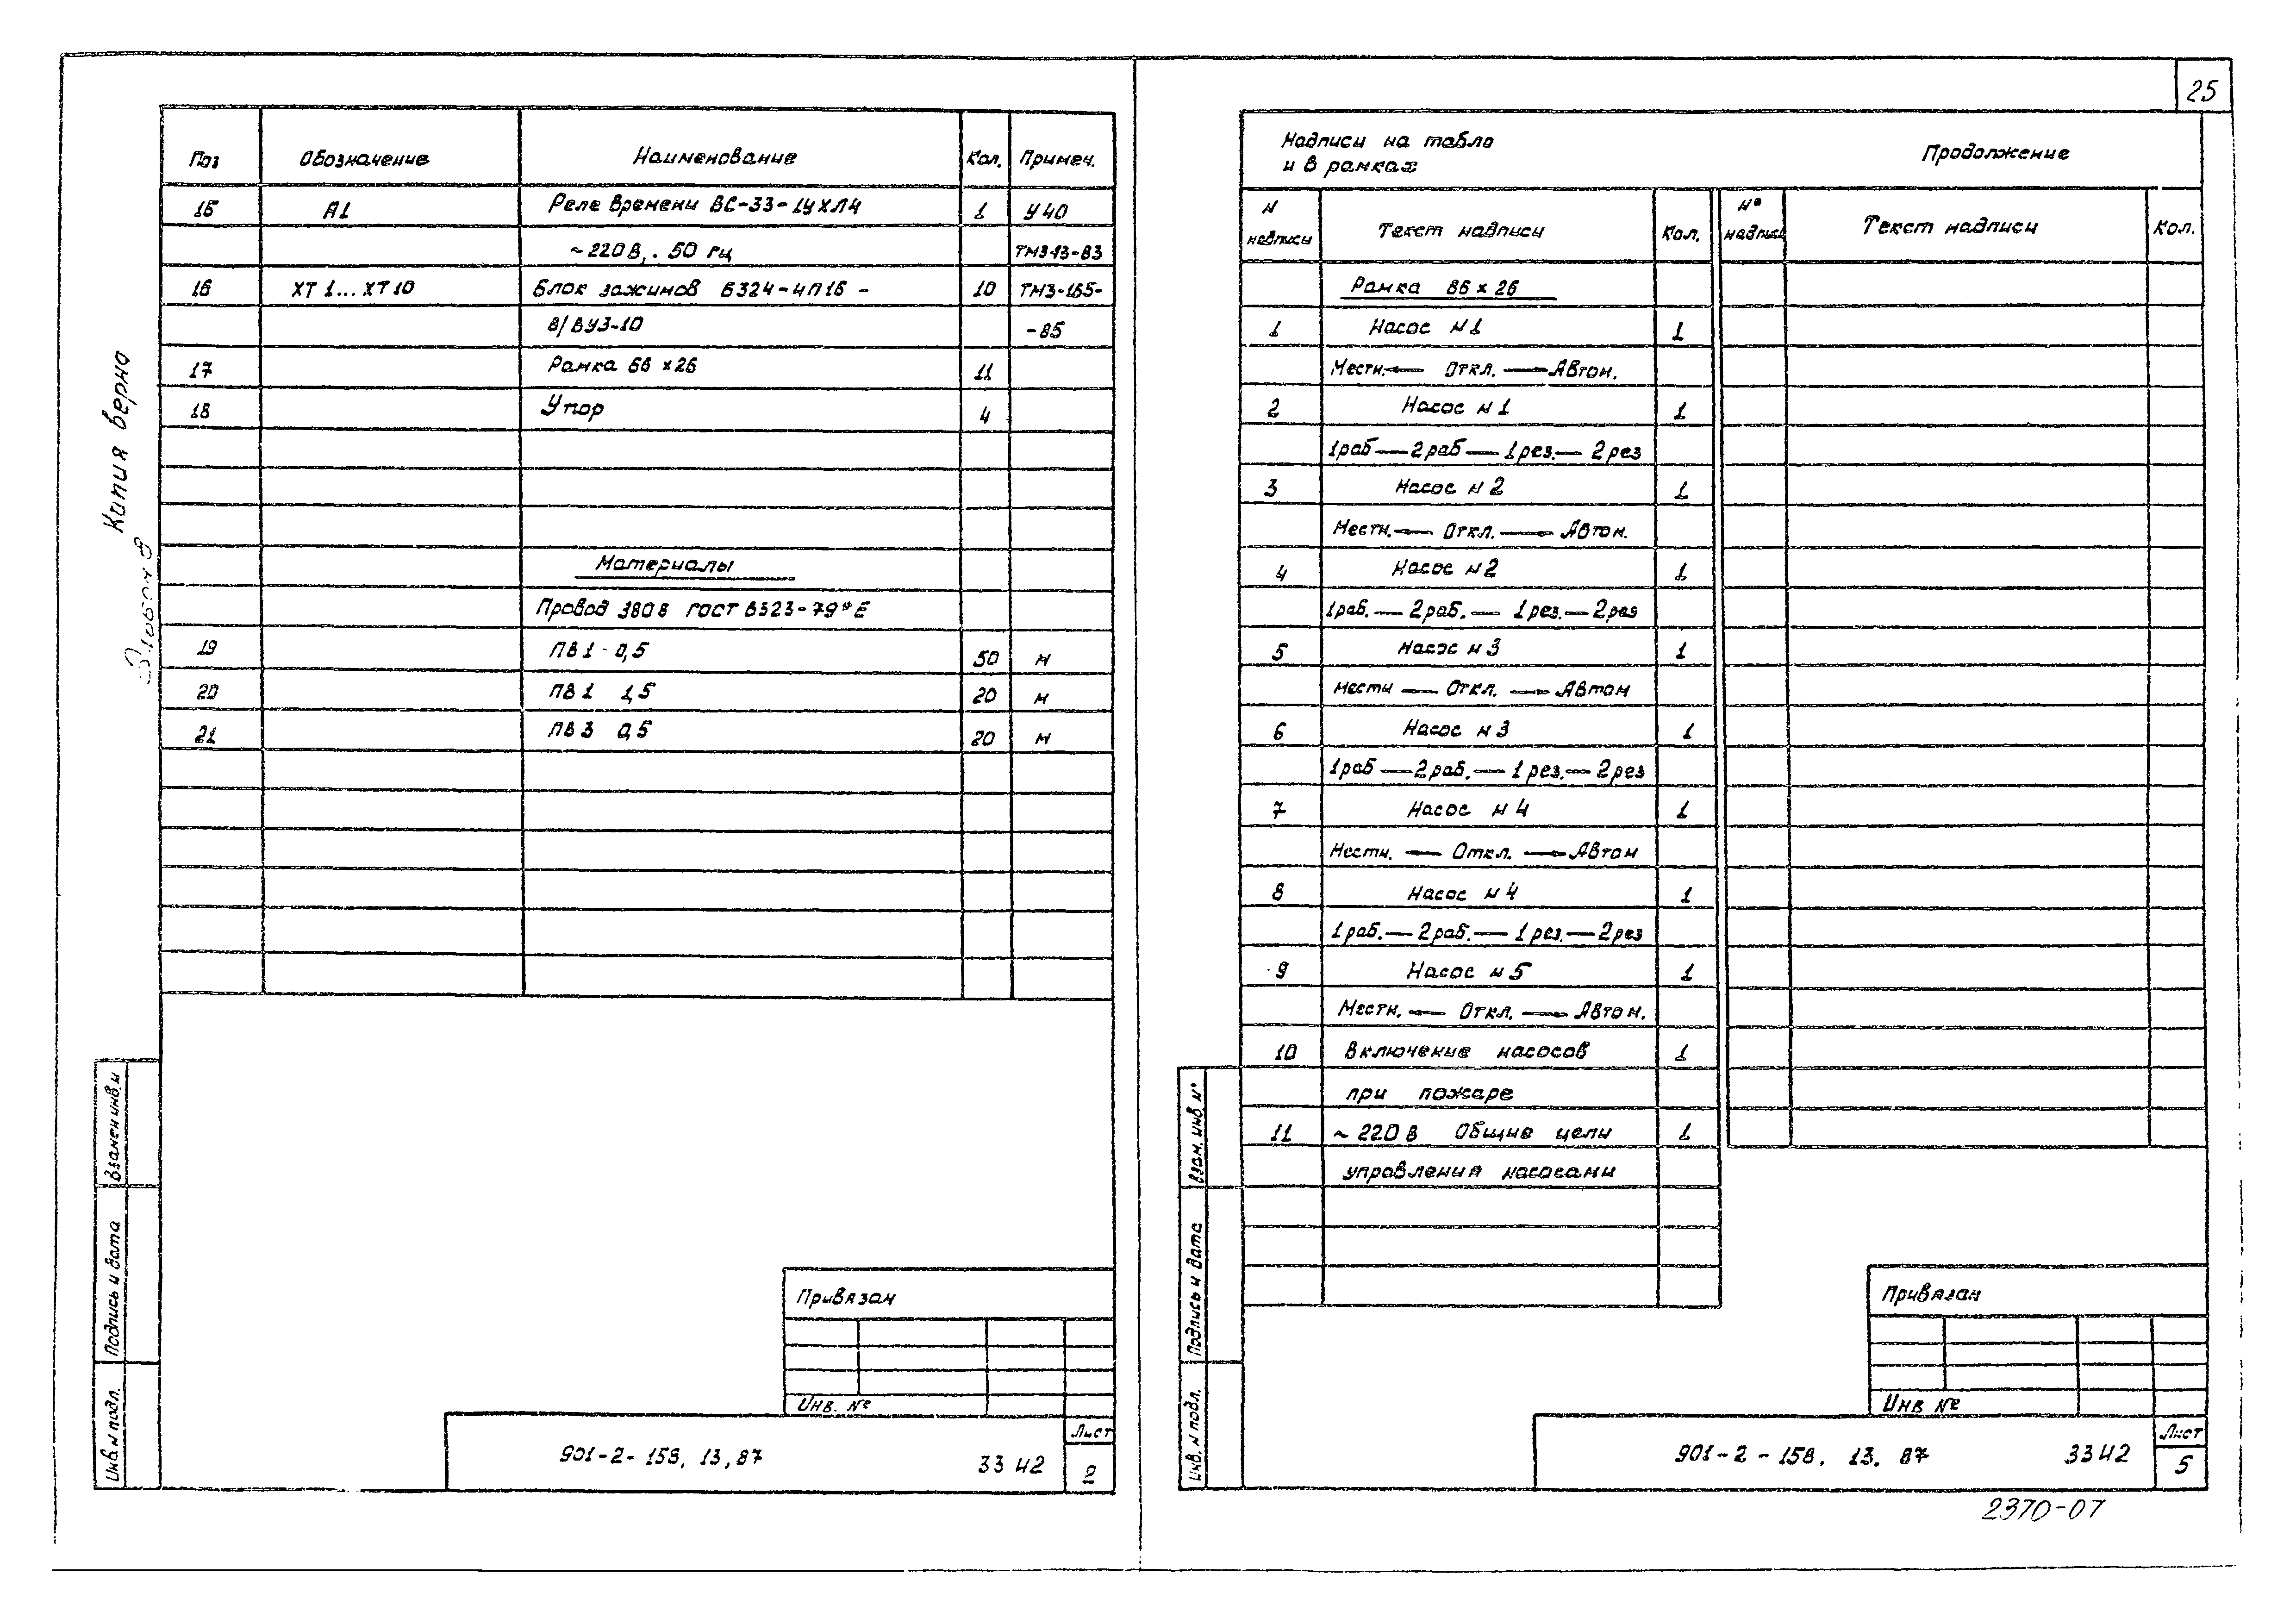 25
Поз Обозначение Наименование Кол. Примеч.
15 А1 Реле времени ВС-33-1УХЛ4 1 У40
~220В, . 50 гц ТМ3-13-83
16 ХТ1...ХТ10 Блок зажимов Б324-4П16 - 10 ТМ3-165-
В/ВУ3-10 -85
17 Рамка 66 х 26 11
18 Упор 4
Материалы
Провод 380В ГОСТ 6323-79*Е
19 ПВ1-0,5 50 м
20 ПВ1 1,5 20 м
21 ПВ3 0,5 20 м
Копия верна
Взамен инв. н
Подпись и дата
Инв. N подл.
Привязан
Инв. №
901-2-158, 13,87 ЗЗИ2
Лист
2
Надписи на табло
и в рамках
Продолжение
N надписи Текст надписи Кол. № надписи Текст надписи Кол.
Рамка 66 х 26
1 Насос N1 1
Местн.← Откл. →Автом.
2 Насос N1 1
1раб—2раб—1рез.—2рез
3 Насос N2 1
Местн.← Откл.→ Автом.
4 Насос N2 1
1раб.—2раб.—1рез—2рез
5 Насос N3 1
Местн ← Откл. →Автом
6 Насос N3 1
1раб—2раб.—1рез.—2рез
7 Насос N4 1
Местн. ← Откл. →Автом
8 Насос N4 1
1раб.—2раб.—1рез.—2рез
9 Насос N5 1
Местн.← Откл. → Автом.
10 Включение насосов 1
при пожаре
11 ~220В Общие цепи 1
управления насосами
Взам. инв. №
Подпись и дата
Инв. N подл.
Привязан
Инв №
901-2-158. 13. 87 ЗЗИ2
Лист
5
2370-07